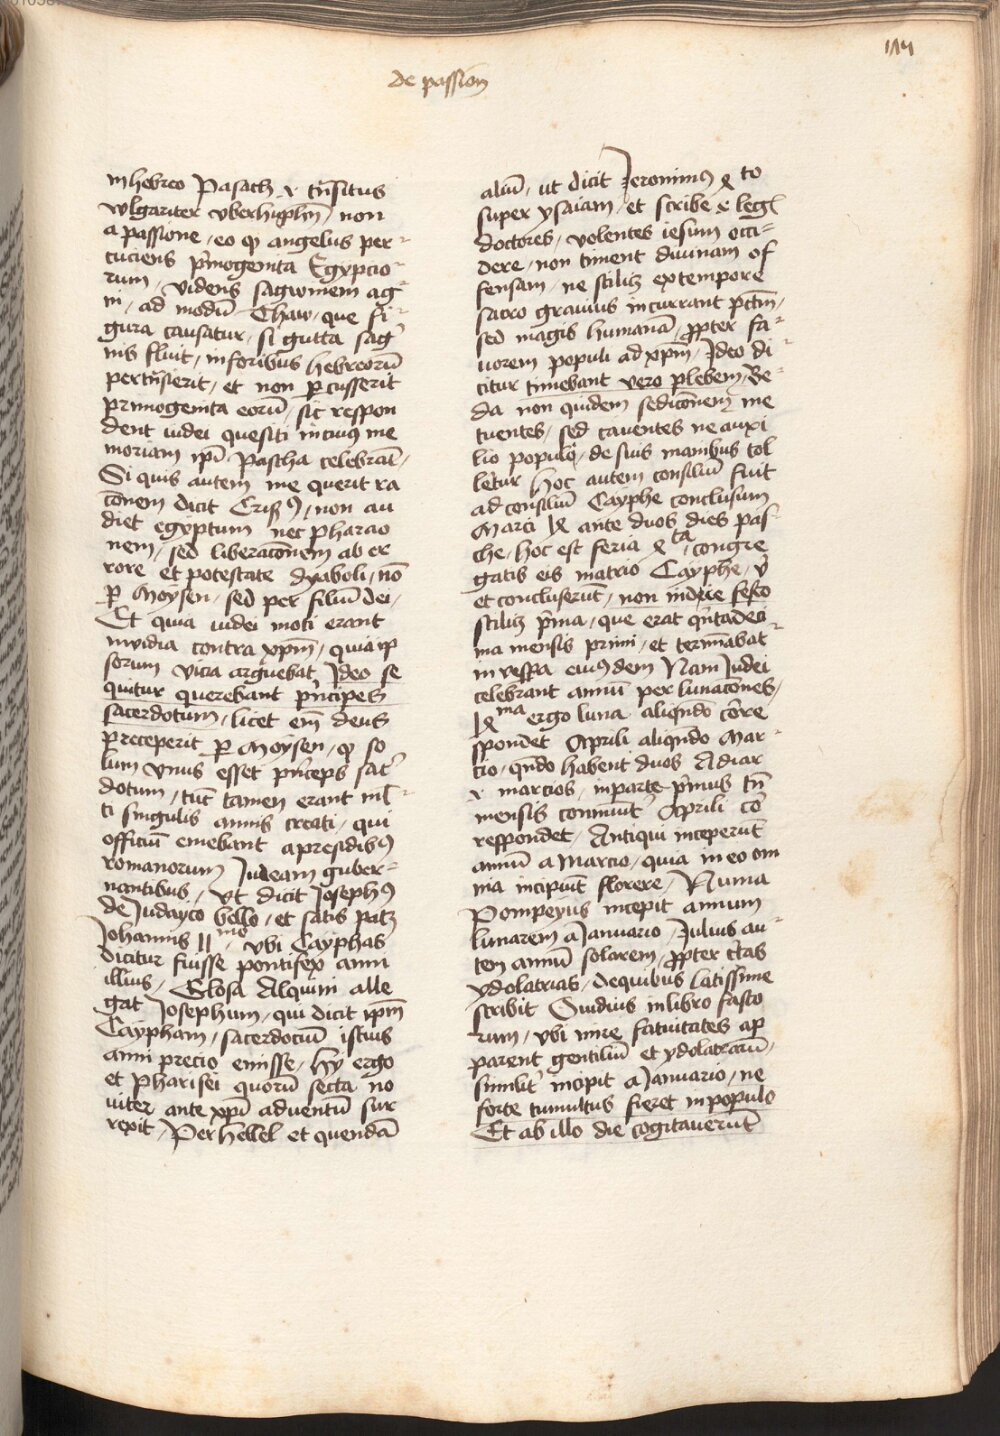 de passion
in hebreo Pasach ⁊ tn̄situs
wlgariter vberhüpfn̄ non
a passione / eo qꝫ angelus per-
cuciens pͥmogenita Egypcio-
rum / videns sagwinem ag-
ni / ad modū Thaw / que fi-
gura causatur / si gutta sag
nis fluit / in foribus hebreorū
pertn̄sierit / et non ꝑcusserit
primogenita eorū / sic respon
dent iudei quesiti in cuiꝰ me
moriam ip̄i Pascha celebrāt /
Si quis autem me querit ra
cōnem dicit Crisꝰ / non au
diet egyptum nec pharao
nem / sed liberacōnem ab er
rore et potestate dyaboli / nō
ꝑ Moysen / sed per filiū dei /
Et quia iudei moti erant
invidia contra xp̄m / quia ip
sorum vicia arguebat Ideo se
quitur querebant pͥncipes
sacerdotum / licet em̄ deus
preceperit ꝑ Moysen / qꝫ so
lum vnus esset pͥnceps sac̓
dotum / tūc tamen erant ml̄-
ti singulis annis creati / qui
officiū emebant a presidibꝰ
romanorum Judeam guber-
nantibus / Vt dicit Josephꝰ
de Judayco bello / et satis patꝫ
Johannis 11mo vbi Cayphas
dicitur fuisse pontifex anni
illius / Glosa Alquini alle
gat Josephum / qui dicit ip̄m
Caypham / sacerdociū istius
anni precio emisse / hy ergo
et pharisei quorū secta no
viter ante xp̄i adventū sur
rexit / Per hellel et quendā
aliū / ut dicit Jeronimꝰ to
super ysaiam / et scribe ⁊ leg
doctores / volentes iesum occi-
dere / non timent divinam of
fensam / ne scilicꝫ eo tempore
sacro gravius incurrant pctm̄ /
sed magis humanā / ꝓpter fa-
uorem populi ad xp̄m / Ideo di
citur timebant vero plebem / Be-
da non quidem sedicōnem me
tuentes / sed caventes ne auxi
lio populi / de suis manibus tol
letur hoc autem consiliū fuit
ad consiliū Cayphe conclusum
Marci ante duos dies pas-
che / hoc est feria ta congre
gatis eis in atrio Cayphe / v̓
et concluserūt / non in die festo
scilicꝫ pͥma / que erat qͥntadeci
ma mensis primi / et termīabat
in vespa eiusdem Nam Judei
celebrant annū per lunacōnes /
ma ergo luna aliqn̄do cōre
spondet Aprili aliqn̄do Mar-
cio / qn̄do habent duos Adiar
⁊ marcios / in parte pͥmus tn̄
mensis cōmiuit̓ Aprili cō
respondet / Antiqui inceperūt
annū a Marcio / quia in eo om
nia incipiūt florere / Numa
Pompeyus incepit annum
lunarem a Januario / Julius au-
tem annū solarem / ꝓpter
ydolatrias / de quibus latissime
scribit Ouidius in libro fasto
rum / vbi mire fatuitates ap
parent gentiliū et ydolatrarū /
similit̓ incipit a Januario / ne
forte tumultus fieret in populo
Et ab illo die cogitaverūt